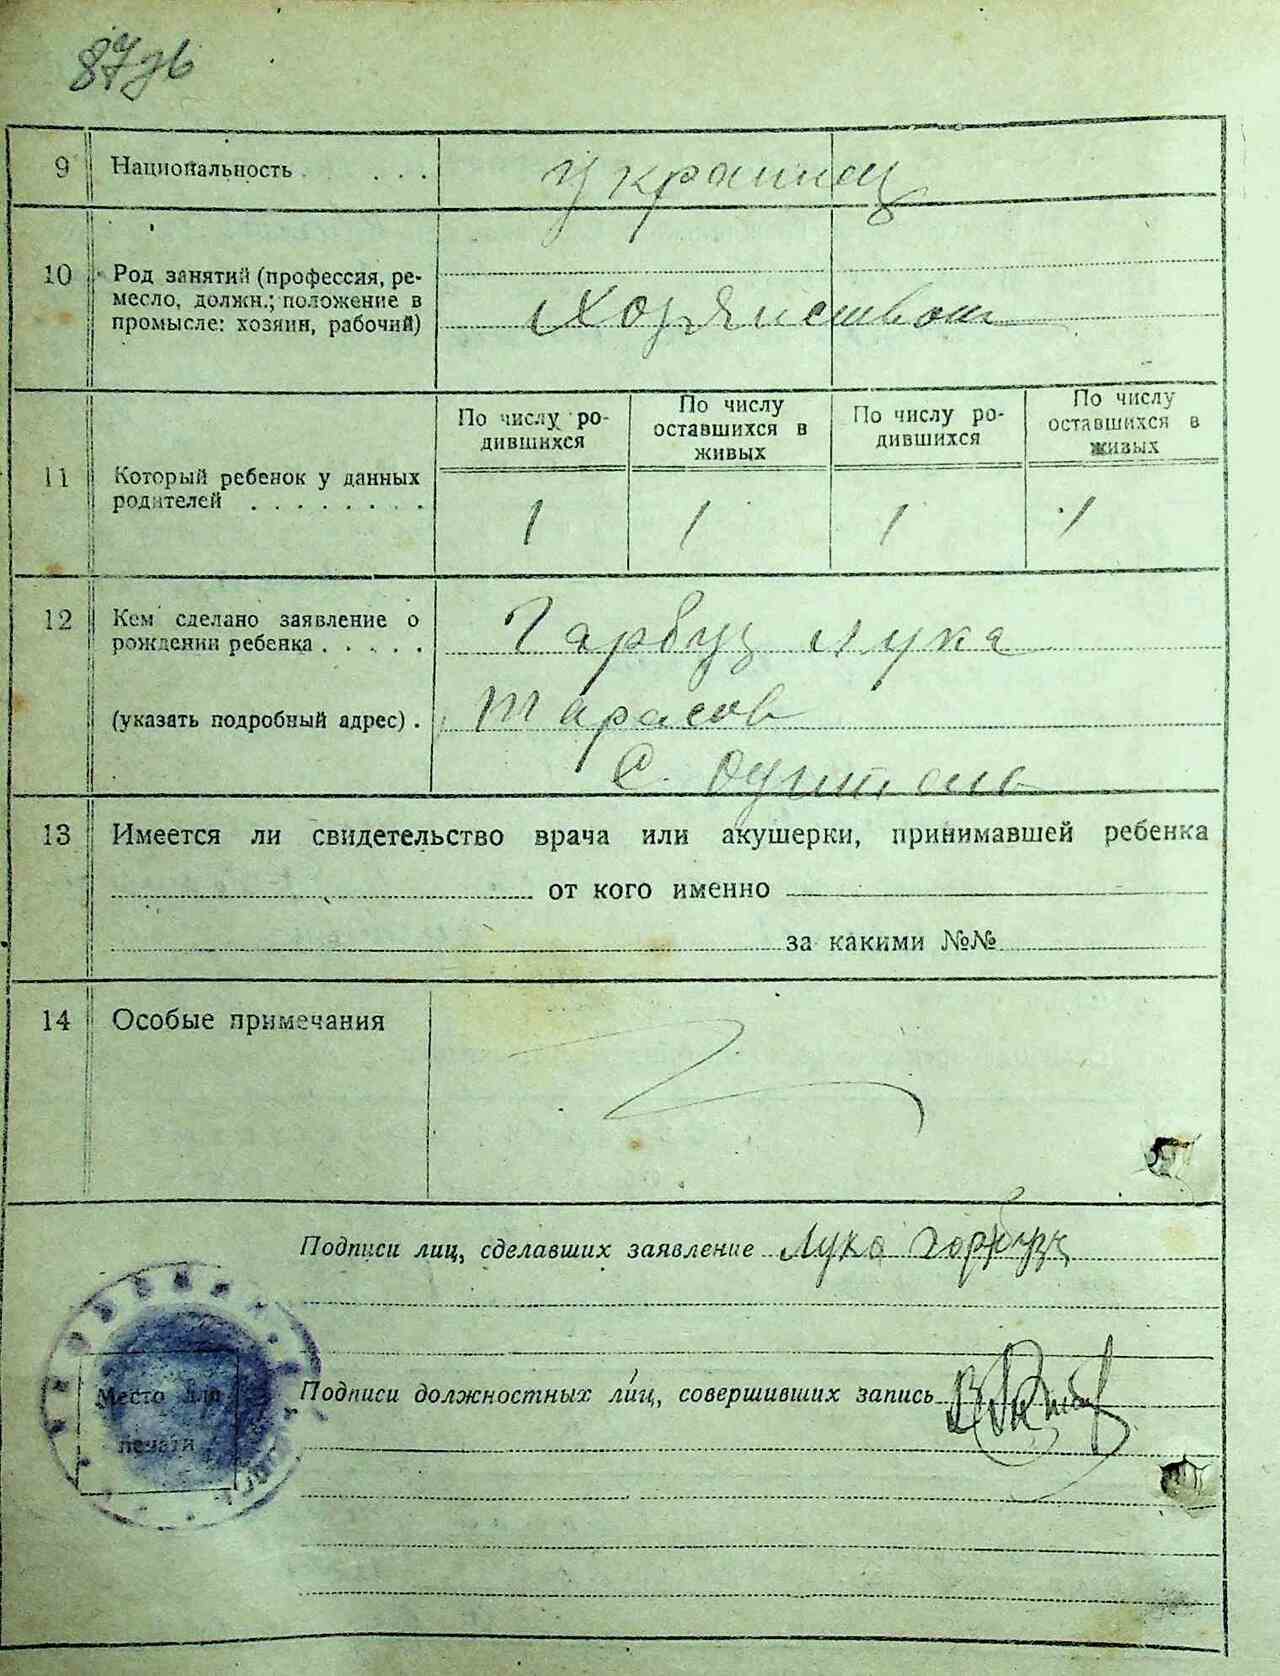 87
9 Национальность . . . . украинец
10 Род занятий (профессия, ре-
месло, должн.; положение в
промысле: хозяин, рабочий)
По числу ро-
дившихся
По числу
оставшихся в
живых
По числу ро-
дившихся
По числу
оставшихся в
живых
11 Который ребенок у данных
родителей . . . . . . . .
1 1 1 1
12 Кем сделано заявление о
рождении ребенка . . . . . Гарбуз Лука
(указать подробный адрес) . Тарасов
с.
13 Имеется ли свидетельство врача или акушерки, принимавшей ребенка
от кого именно
за какими №№
14 Особые примечания
Подписи лиц, сделавших заявление Лука Горбуз
Подписи должностных лиц, совершивших запись
Место для
печати